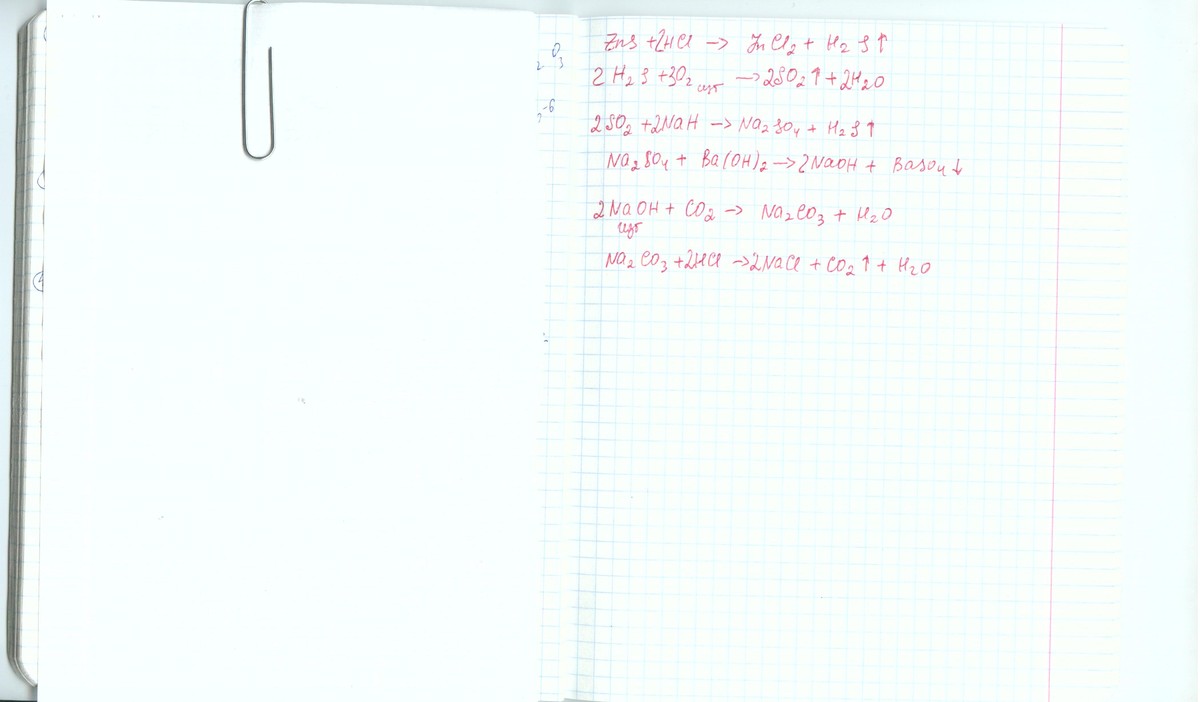 O₃
₂
-6
ZnS + 2HCl → ZnCl₂ + H₂S↑
2H₂S + 3O₂ изб → 2SO₂↑ + 2H₂O
2SO₂ + 2NaH → Na₂SO₄ + H₂S↑
Na₂SO₄ + Ba(OH)₂ → 2NaOH + BaSO₄↓
2NaOH + CO₂ → Na₂CO₃ + H₂O
изб
Na₂CO₃ + 2HCl → 2NaCl + CO₂↑ + H₂O